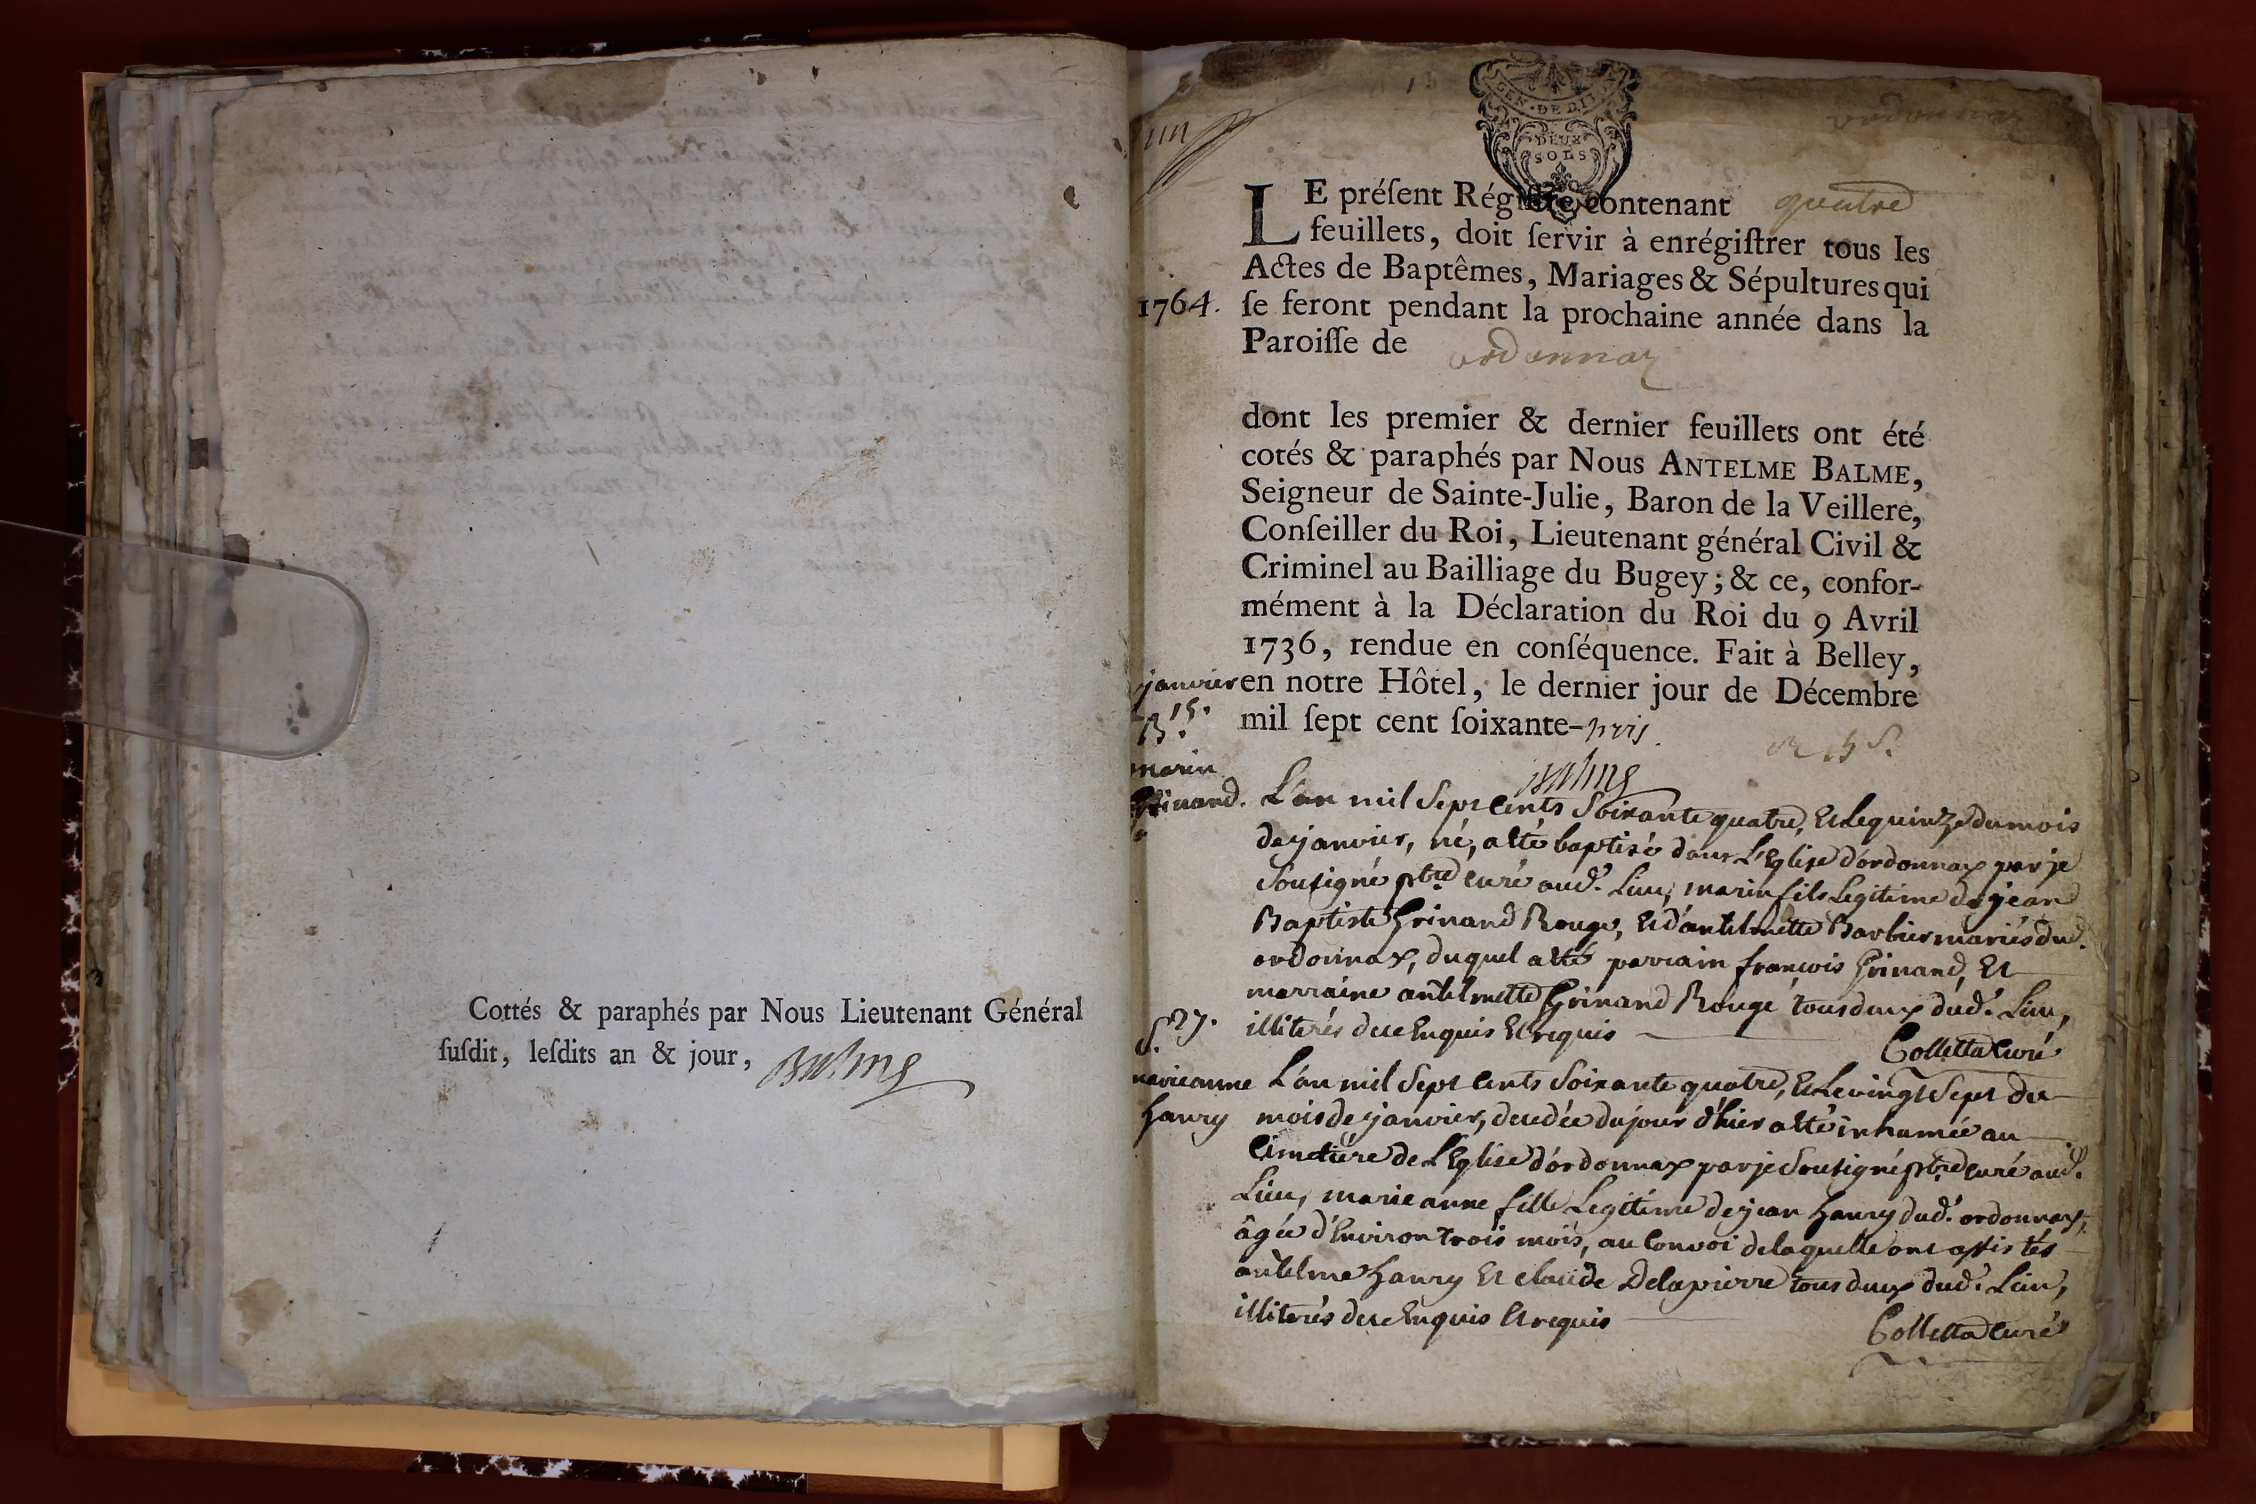 Cottés & paraphés par Nous Lieutenant Général
ſuſdit, leſdits an & jour, Balme
un
GEN · DE DIJ
DEUX
SOLS
ordonnax
LE préſent Régiſtre contenant quatre
feuillets, doit ſervir à enrégiſtrer tous les
Actes de Baptêmes, Mariages & Sépultures qui
1764. ſe feront pendant la prochaine année dans la
Paroiſſe de ordonnax
dont les premier & dernier feuillets ont été
cotés & paraphés par Nous ANTELME BALME,
Seigneur de Sainte-Julie, Baron de la Veillere,
Conſeiller du Roi, Lieutenant général Civil &
Criminel au Bailliage du Bugey ; & ce, confor-
mément à la Déclaration du Roi du 9 Avril
1736, rendue en conſéquence. Fait à Belley,
en notre Hôtel, le dernier jour de Décembre
mil ſept cent ſoixante-trois.
Balme
janvier
15.
B.
marin
Grinand.
L'an mil Sept Cents Soixante quatre, Et Le quinze du mois
de janvier, né, a êté baptisé dans L'Eglise d'ordonnax par je
Sousigné ptre curé aud. Lieu, marin fils Legitime de jean
Baptiste Grinand Rouge, Et d'antelmette Barbier mariés dud.
ordonnax, duquel a êté parrain françois Grinand, Et
marraine antelmette Grinand Rouge tous deux dud. Lieu,
illiterés de ce Enquis Et requis
Colletta Curé
27.
S.
marieanne
haury
L'an mil Sept Cents Soixante quatre, Et Le vingt Sept du
mois de janvier, decedée du jour d'hier a êté inhumée au
Cimetière de L'Eglise d'ordonnax par je Sousigné ptre curé aud.
Lieu, marieanne fille Legitime de jean haury dud. ordonnax,
âgée d'Environ trois mois, au Convoi de laquelle ont assistés
antelme haury Et claude Delapierre tous deux dud. Lieu,
illiterés de ce Enquis Et requis
Colletta Curé